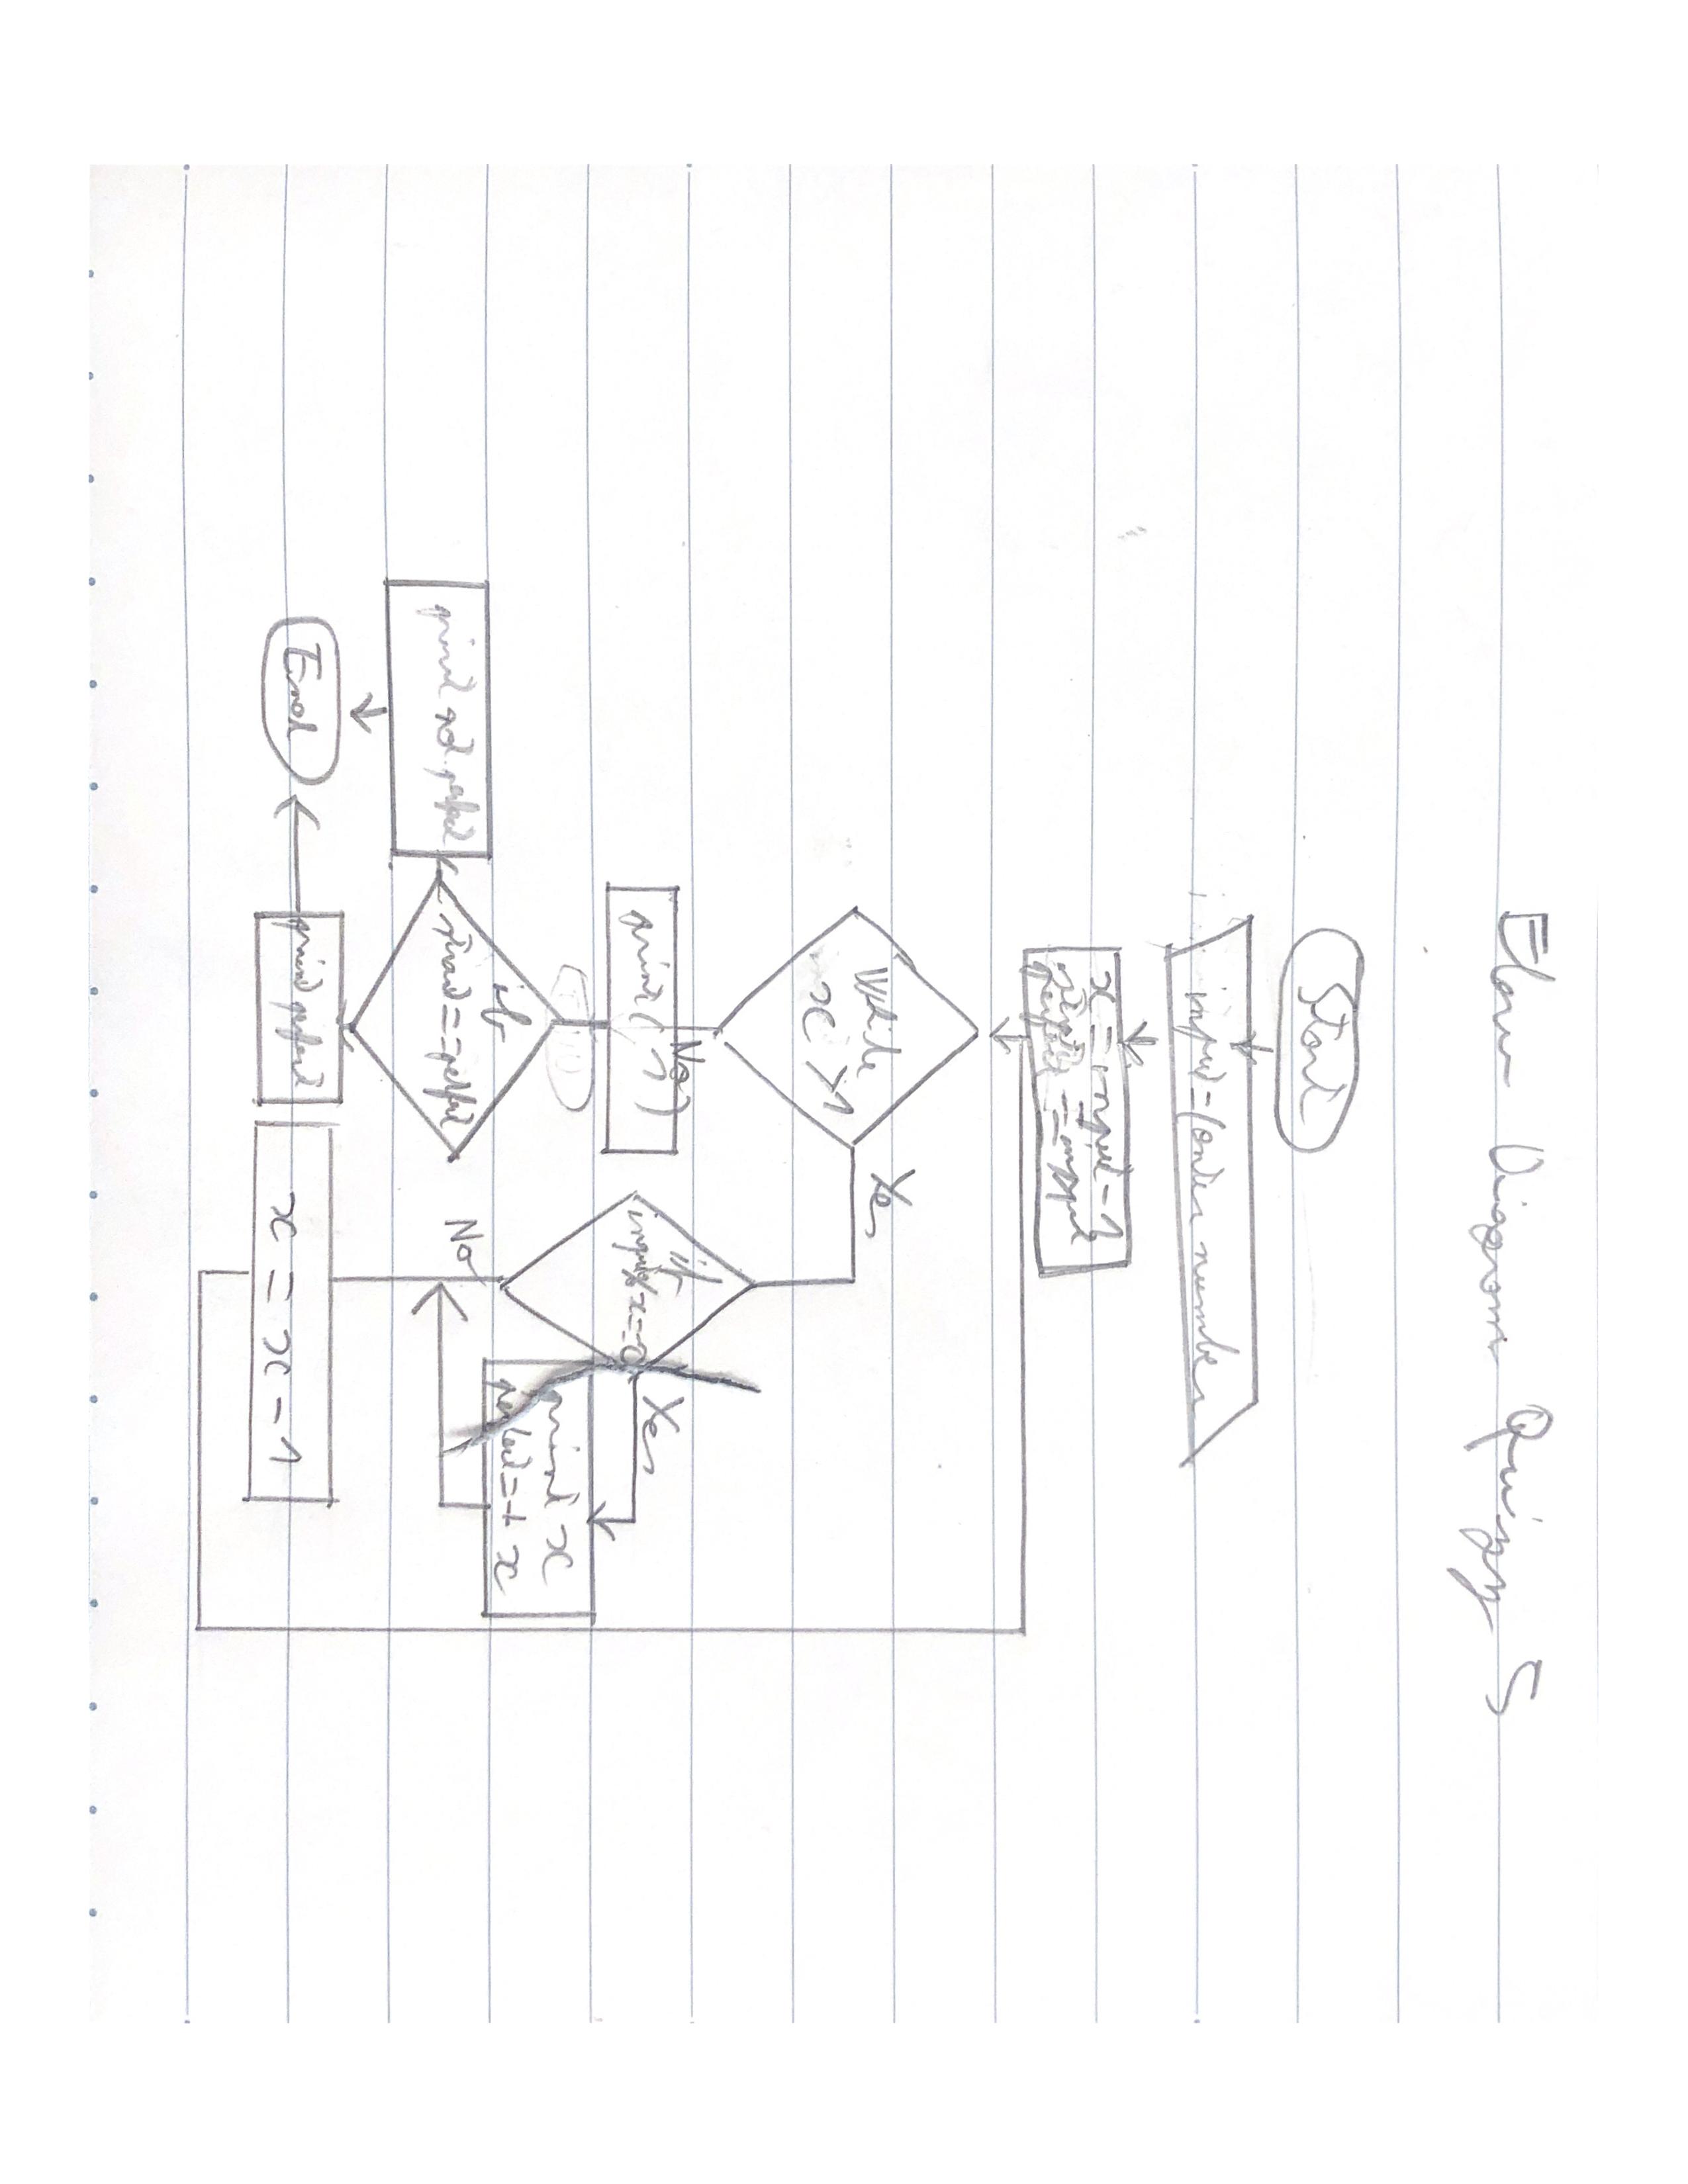 Flow Diagram Quizz 5
Start
input = (enter number
x = input - 1
= input
While
x > 1
Yes
No
print( 1 )
if
input % x == 0
Yes
print x
perfect = + x
No
x = x - 1
if
== perfect
print not perfect
print perfect
End